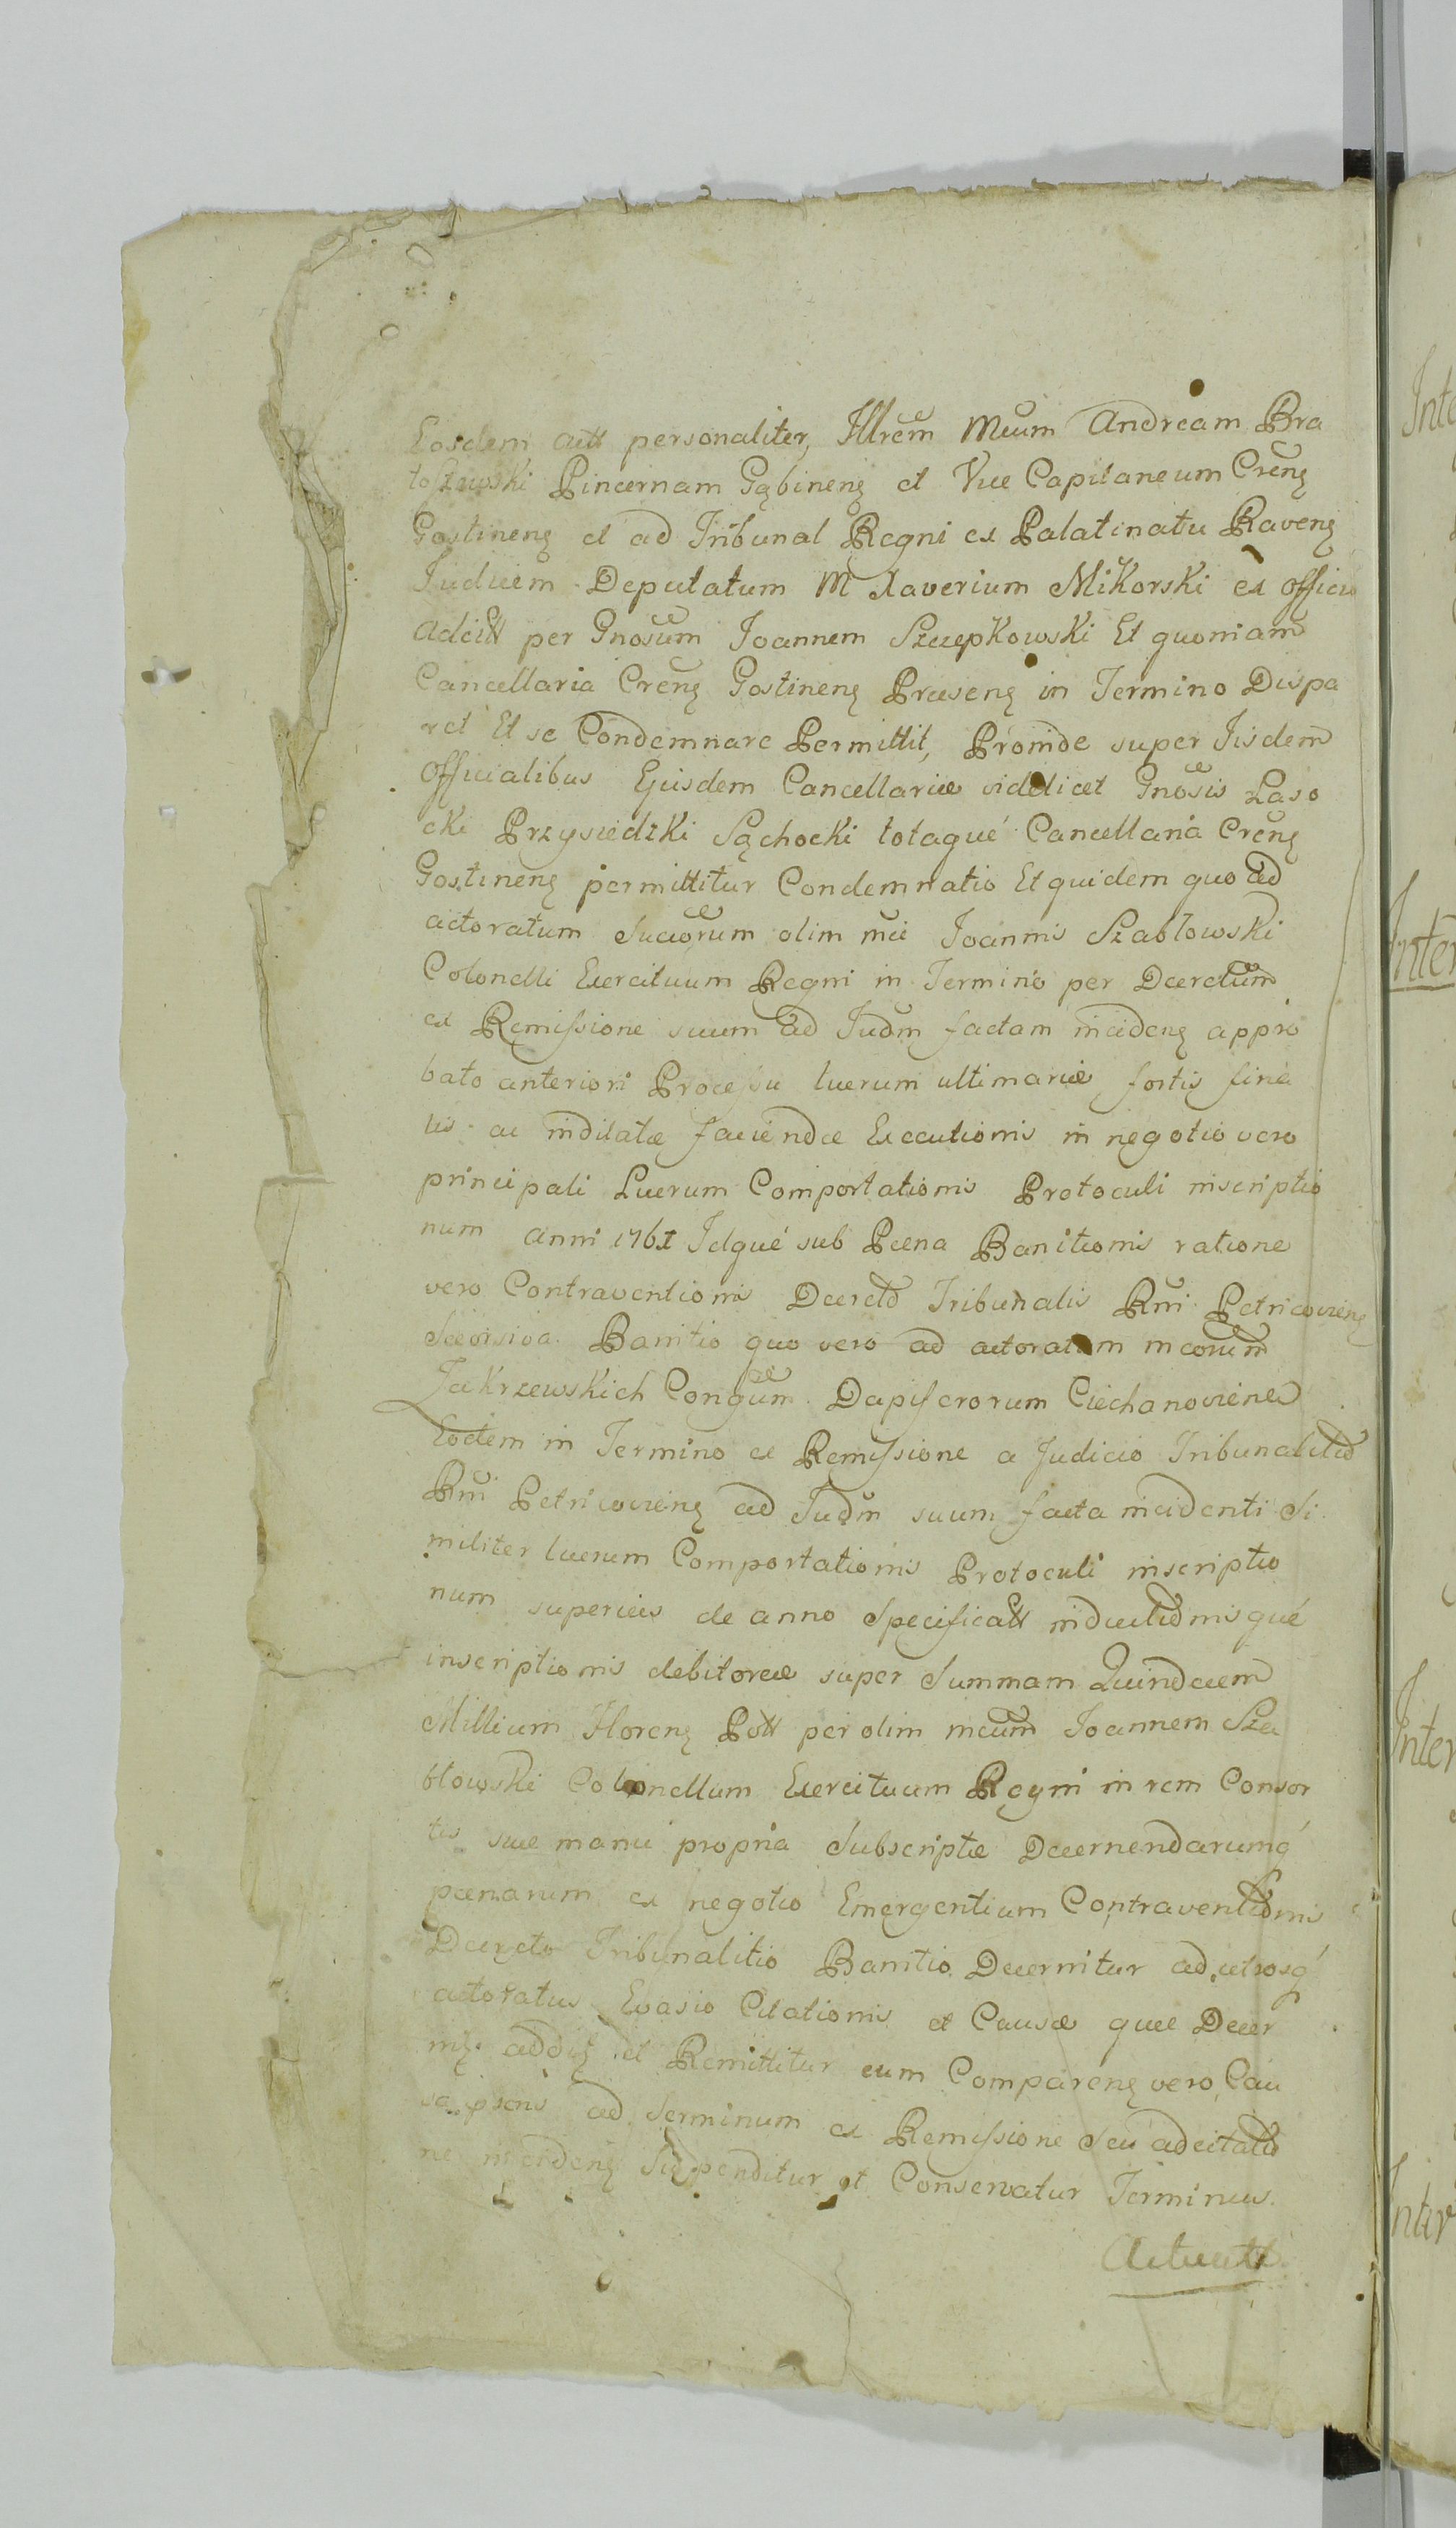 Eosdem actt personaliter, Illrem Mcum Andream Bra
toszewski Pincernam Gąbinens et Vice Capitaneum Crens
Gostinens et ad Tribunal Regni ex Palatinatu Ravens
Judicem Deputatum M Xaverium Mikorski ex officio
adcitt per Gnosum Joannem Szczepkowski Et quoniam
Cancellaria Crens Gostinens Præsens in Termino Dispa
ret Et se Condemnare Permittit, Proinde super Iisdem
Officialibus Ejusdem Cancellariæ videlicet Gnosis Laso
cki Przysiedzki Sąchocki totaque Cancellaria Crens
Gostinens permittitur Condemnatio Et quidem quo ad
actoratum Sucorum olim mci Joannis Szabłowski
Colonelli Exercituum Regni in Termino per Decretum
ex Remissione suum ad Judm factam incidens appro
bato anteriori Processu lucrum ultimariæ fortis fina
lis ac inditatæ faciendæ Executionis in negotio vero
principali Lucrum Comportationis Protoculi inscriptio
num anni 1761 Idque sub Pœna Banitionis ratione
vero Contraventionis Decreto Tribunalis Rni Petricoviens
Seorsiva Banitio quo vero ad actoratum mcorum
Zakrzewskich Congum Dapiferorum Ciechanoviens
Eodem in Termino ex Remissione a Judicio Tribunalitio
Rni Petricoviens ad Judm suum facta incidenti Si
militer lucrum Comportationis Protoculi inscriptio
num superius de anno Specificatt inductionisque
inscriptionis debitoreæ super Summam Quindecem
Millium Florens Poll per olim mcum Joannem Sza
błowski Colonellum Exercituum Regni in rem Consor
tis suæ manu propria Subscriptæ Decernendarumq
pœnarum ex negotio Emergentium Contraventionis
Decreto Tribunalitio Banitio Decernitur ad utrosq
actoratus Evasio Citationis et Causæ quæ Decer
nis addis et Remittitur cum Comparens vero Cau
sa psens ad Terminum ex Remissione Seu adcitatio
ne incidens Suspenditur et Conservatur Terminus.